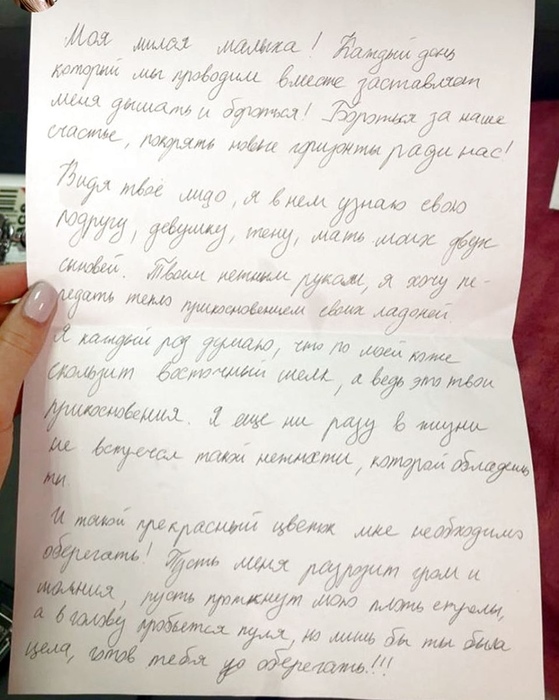 Моя милая малыха! Каждый день
который мы проводим вместе заставляет
меня дышать и бороться! Бороться за наше
счастье, покорять новые горизонты ради нас!
Видя твоё лицо, я в нем узнаю свою
подругу, девушку, жену, мать моих двух
сыновей. Твоим нежным рукам, я хочу пе-
редать тепло прикосновением своих ладоней.
Я каждый род думаю, что по моей коже
скользит восточный шелк, а ведь это твои
прикосновения. Я еще ни разу в жизни
не встречал такой нежности, которой обладаешь
ты.
И такой прекрасный цветок мне необходимо
оберегать! Пусть меня разразит гром и
молния, пусть проткнут мою плоть стрелы,
а в голову пробьется пуля, но лишь бы ты была
цела, готов тебя уо оберегать!!!